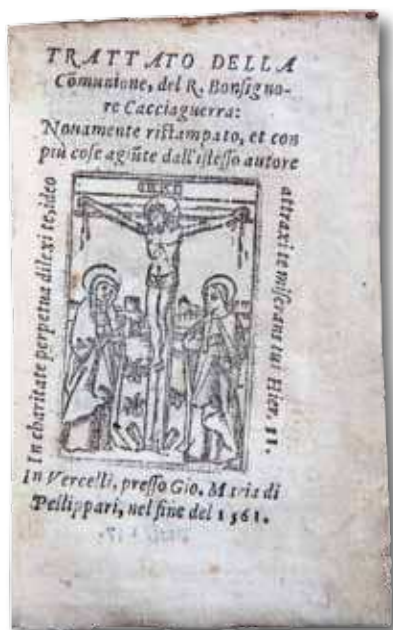 TRATTATO DELLA
Comunione, del R. Bonsigno-
re Cacciaguerra:
Nouamente ristampato, et con
più cose agiũte dall'istesso autore
In charitate perpetua dilexi te, ideo
attraxi te miserans tui Hier. 31.
In Vercelli, presso Gio. Maria di
Pellippari, nel fine del 1561.